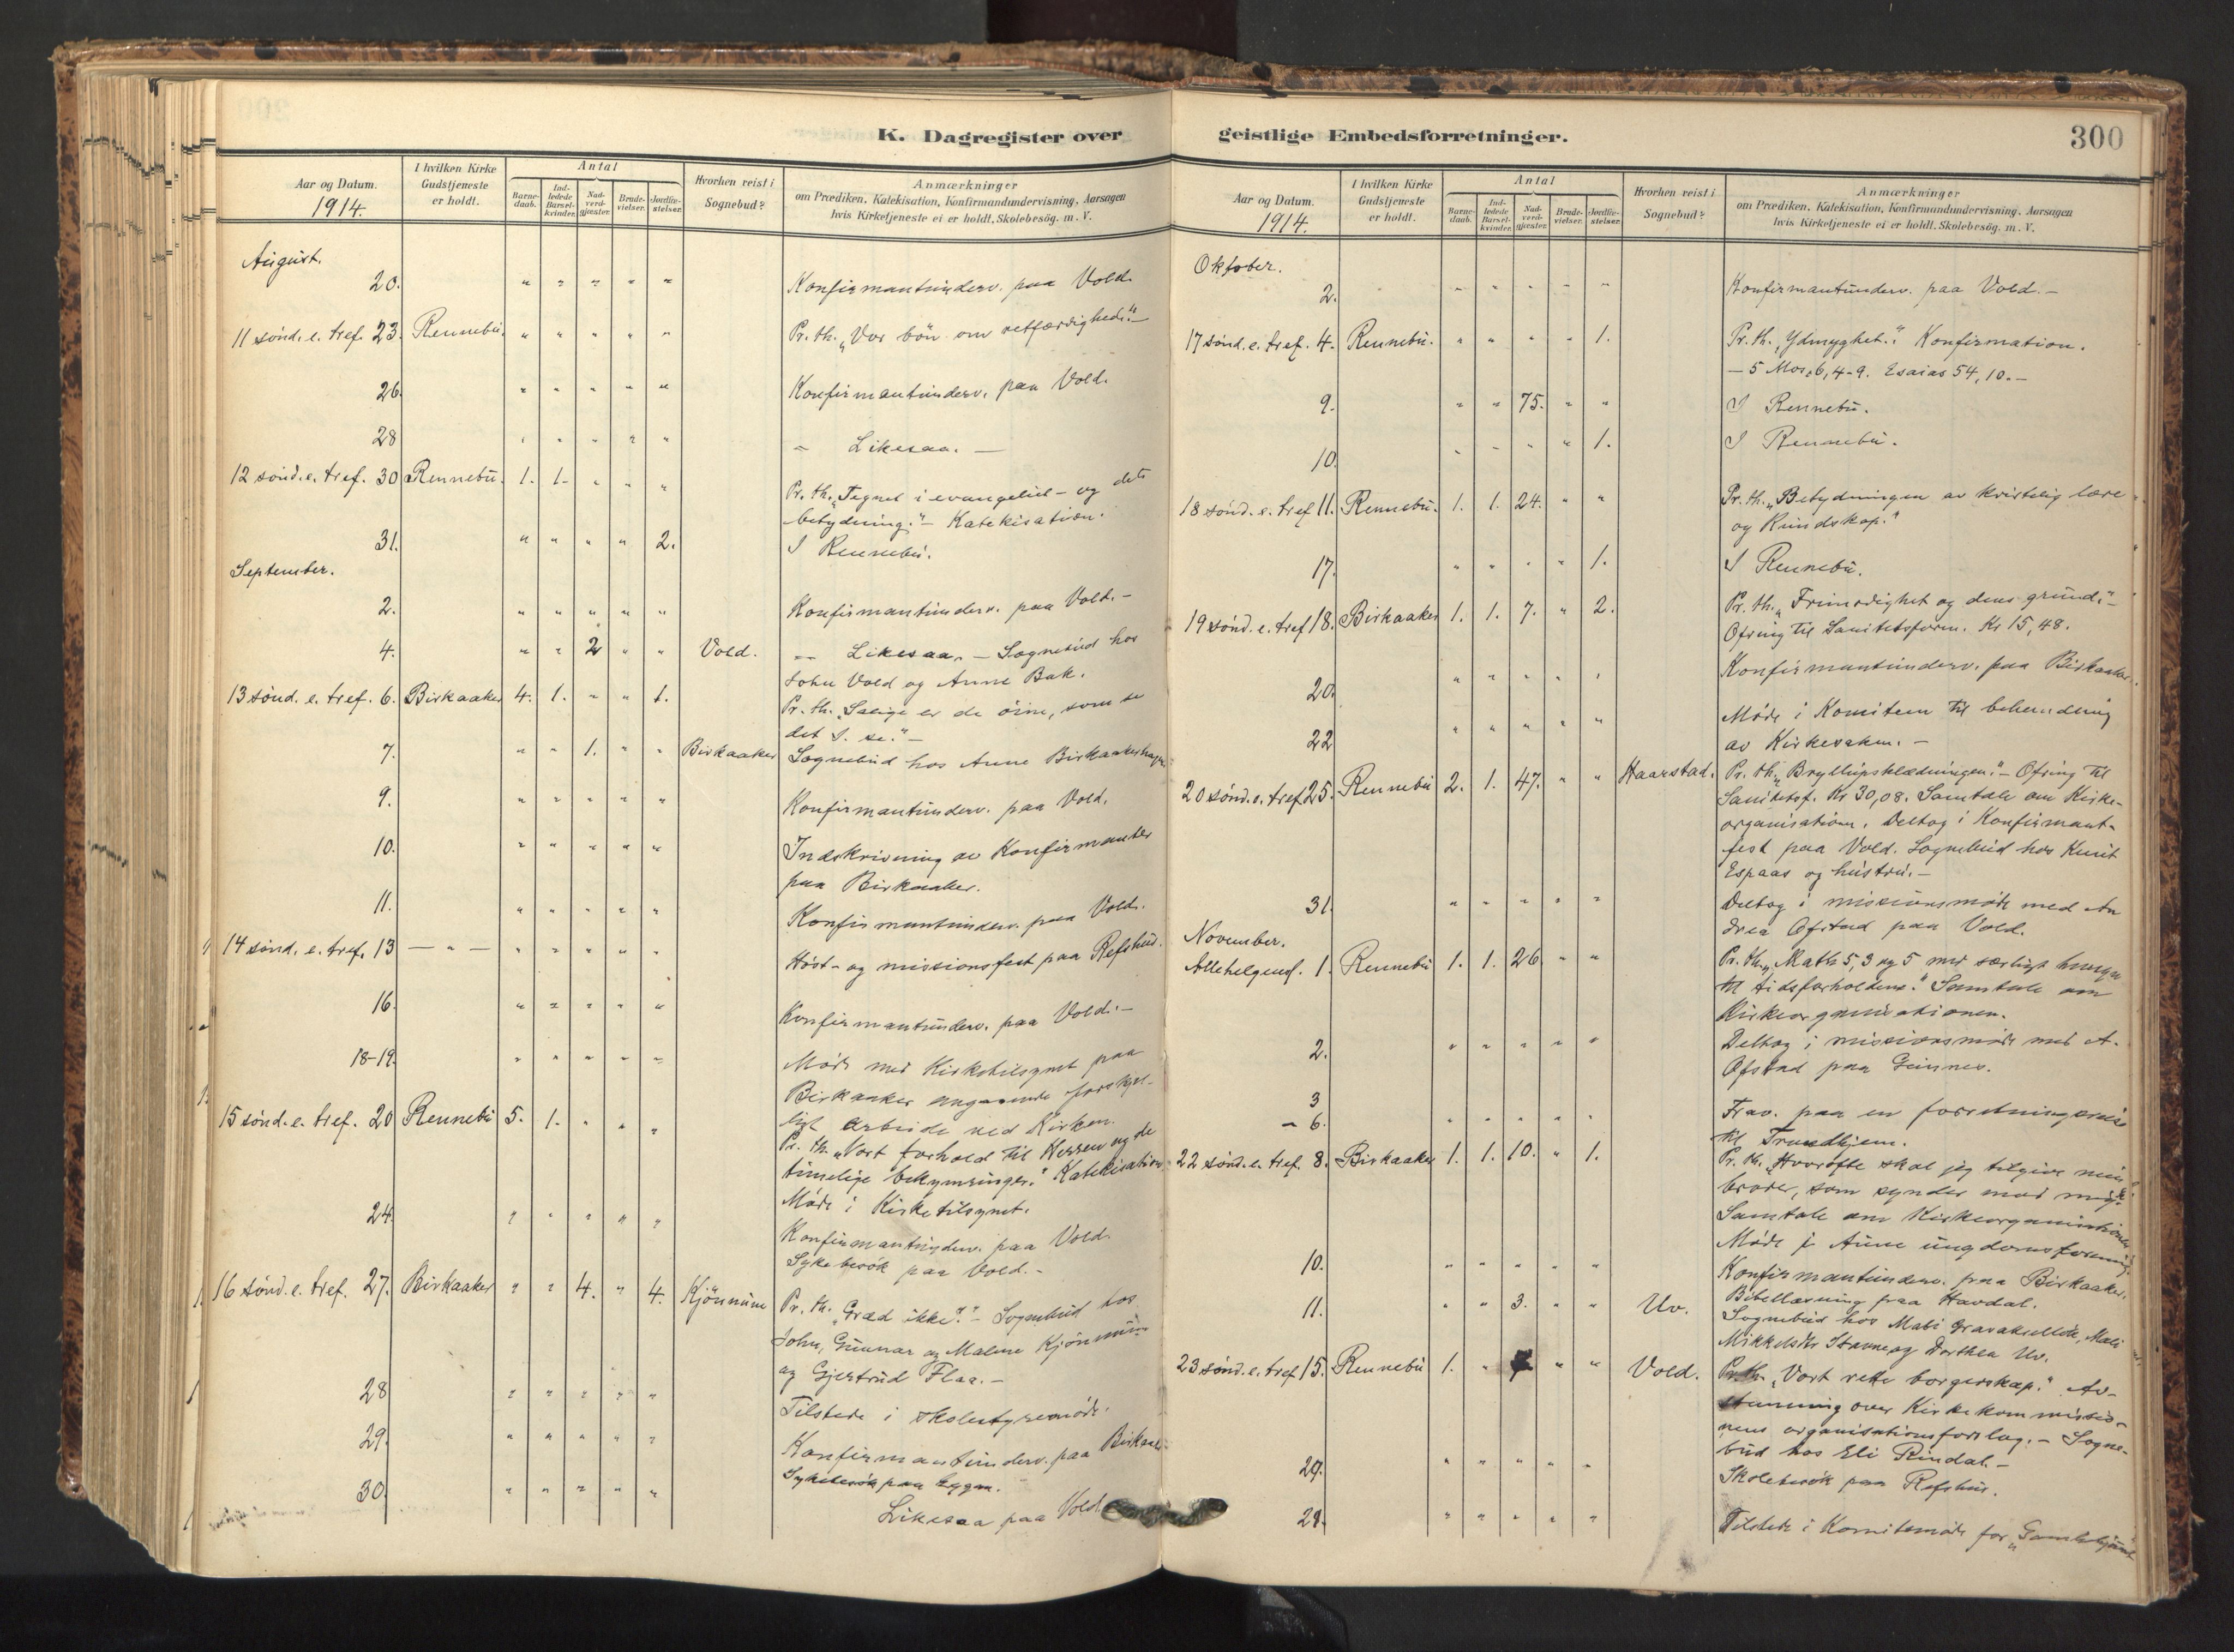 K. Dagregister over
Aar og Datum.
1914.
I hvilken Kirke
Gudstjeneste
er holdt.
Antal
Barne-
daab.
Ind-
ledede
Barsel-
kvinder.
Nad-
verd-
gjæster.
Brude-
vielser.
Jordfæ-
stelser.
Hvorhen reist i
Sognebud?
Anmærkninger
om Prædiken, Katekisation, Konfirmandundervisning, Aarsagen
hvis Kirketjeneste ei er holdt, Skolebesög. m. V.
August.
20. " " " " " Konfirmantunderv. paa Vold.
11 sønd. e. tref. 23. Rennebu. " " " " " Pr. th. „Vor bön om retfærdighed."–
26. " " " " " Konfirmantunderv. paa Vold.
28 " " " " " – Likesaa. –
12 sønd. e. tref. 30 Rennebu. 1. 1. " " " Pr. th. „Tegnet i evangeliet – og dets
betydning."– Katekisation.
31. " " " " 2. I Rennebu.
September.
2. " " " " " Konfirmantunderv. paa Vold.–
4. " " 2 " " Vold. – Likesaa. – Sognebud hos
John Vold og Anne Bak.
13 sønd. e. tref. 6. Birkaaker 4. 1. " " 1. Pr. th. „Salige er de öine, som se
det I. se."–
7. " " 1. " " Birkaaker Sognebud hos Anne Birkaakerhagen
9. " " " " " Konfirmantunderv. paa Vold.
10. " " " " " Indskrivning av Konfirmanter
paa Birkaaker.
11. " " " " " Konfirmantunderv. paa Vold.
14 sønd. e. tref. 13 — " — " " " " " Höst- og missionsfest paa Refshus.
16. " " " " " Konfirmantunderv. paa Vold.–
18-19. " " " " " Møde med Kirketilsynet paa
Birkaaker angaaende forskjel-
ligt arbeide ved Kirken.
15 sønd. e. tref. 20 Rennebu 5. 1. " " " Pr. th. „Vort forhold til Herren og de
timelige bekymringer." Katekisation.
Møde i Kirketilsynet.
24. " " " " " Konfirmantunderv. paa Vold.
Sykebesök paa Vold.–
16 sønd. e. tref. 27. Birkaaker " " 4. " 4. Kjönnum Pr. th. „Græd ikke!"– Sognebud hos
John, Gunnar og Malene Kjönnum
og Gjertrud Flaa.–
28 " " " " " Tilstede i skolestyremöde.
29. " " " " " Konfirmantunderv. paa Birkaak.
Sykebesök paa bygen.
30. " " " " " Likesaa paa Vold
geistlige Embedsforretninger.
300
Aar og Datum.
1914.
I hvilken Kirke
Gudstjeneste
er holdt.
Antal
Barne-
daab.
Ind-
ledede
Barsel-
kvinder.
Nad-
verd-
gjæster.
Brude-
vielser.
Jordfæ-
stelser.
Hvorhen reist i
Sognebud?
Anmærkninger
om Prædiken, Katekisation, Konfirmandundervisning, Aarsagen
hvis Kirketjeneste ei er holdt. Skolebesög. m. V.
Oktober.
2. " " " " " Konfirmantunderv. paa Vold.–
17 sønd. e. tref. 4. Rennebu. " " " " 1. Pr. th. „Ydmyghet." Konfirmation.
– 5 Mos. 6, 4-9. Esaias 54, 10.–
9. " " 75. " " I Rennebu.
10. " " " " 1. I Rennebu.
18 sønd. e. tref 11. Rennebu. 1. 1. 24. " " Pr. th. „Betydningen av kristelig lære
og Kundskap."
17. " " " " 1. I Rennebu.
19 sønd. e. tref 18. Birkaaker 1. 1. 7. " 2. Pr. th. „Frimodighet og dens grund."–
Ofring til Sanitetsforen. Kr 15,48.
20. " " " " " Konfirmantunderv. paa Birkaaker.
22 " " " " " Møde i Komiteen til behandling
av Kirkesaken.–
20 sønd. e. tref 25. Rennebu 2. 1. 47. " " Haarstad. Pr. th. „Bryllupsklædningen."– Ofring til
Sanitetsf. Kr 30,08. Samtale om Kirke-
organisation. Deltog i Konfirmant-
fest paa Vold. Sognebud hos Knut
Espaas og hustru.–
31. " " " " " Deltog i missionsmøte med An
drea Ofstad paa Vold.
November.
Allehelgensf. 1. Rennebu 1. 1. 26 " " Pr. th. „Math 5, 3 og 5 med særligt hensyn
til tidsforholdene." Samtale om
Kirkeorganisationen.
2. " " " " " Deltog i missionsmøte med A.
Ofstad paa Gunnes.
3
– 6. " " " " " Frav. paa en forretningsreise
til Trondhjem.
22 sønd. e. tref. 8. Birkaaker 1. 1. 10. " 1. Pr. th. „Hvorofte skal jeg tilgive min
broder, som synder mod mig?"
Samtale om Kirkeorganisationen.
Møde i Aune ungdomsforening.
10. " " " " " Konfirmantunderv. paa Birkaaker.
Bibellæsning paa Havdal.
11. " " 3. " " Uv. Sognebud hos Mali Mali
Mikkelsdtr Stavne og Dorthea Uv.
23 sønd. e. tref 15. Rennebu 1. " " " Vold. Pr. th. „Vort rette borgerskap." Av-
stemning over Kirkekommissio-
nens organisationsforslag.– Sogne-
bud hos Eli Rindal.–
20. " " " " " Skolebesök paa Refshus.
29. " " " " " Tilstede i Komitemøde for „Gamlehjem"